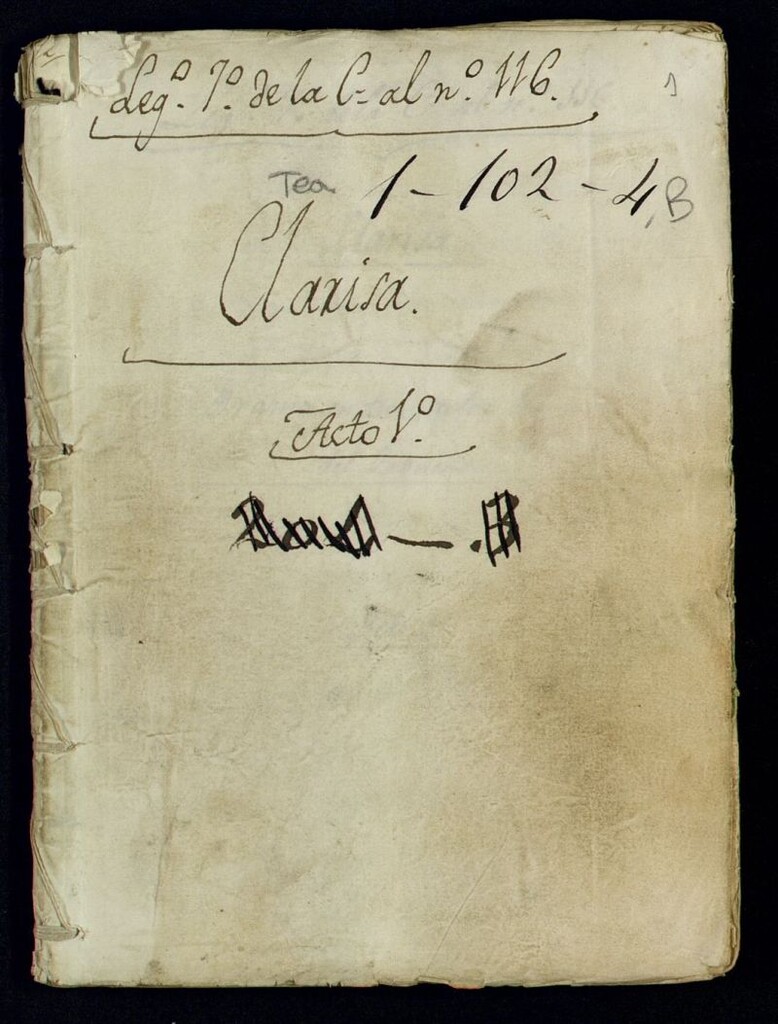 Leg.º 7º. de la C= al nº. 116.
1
Tea 1-102-4, B
Clarisa.
Acto 1º.